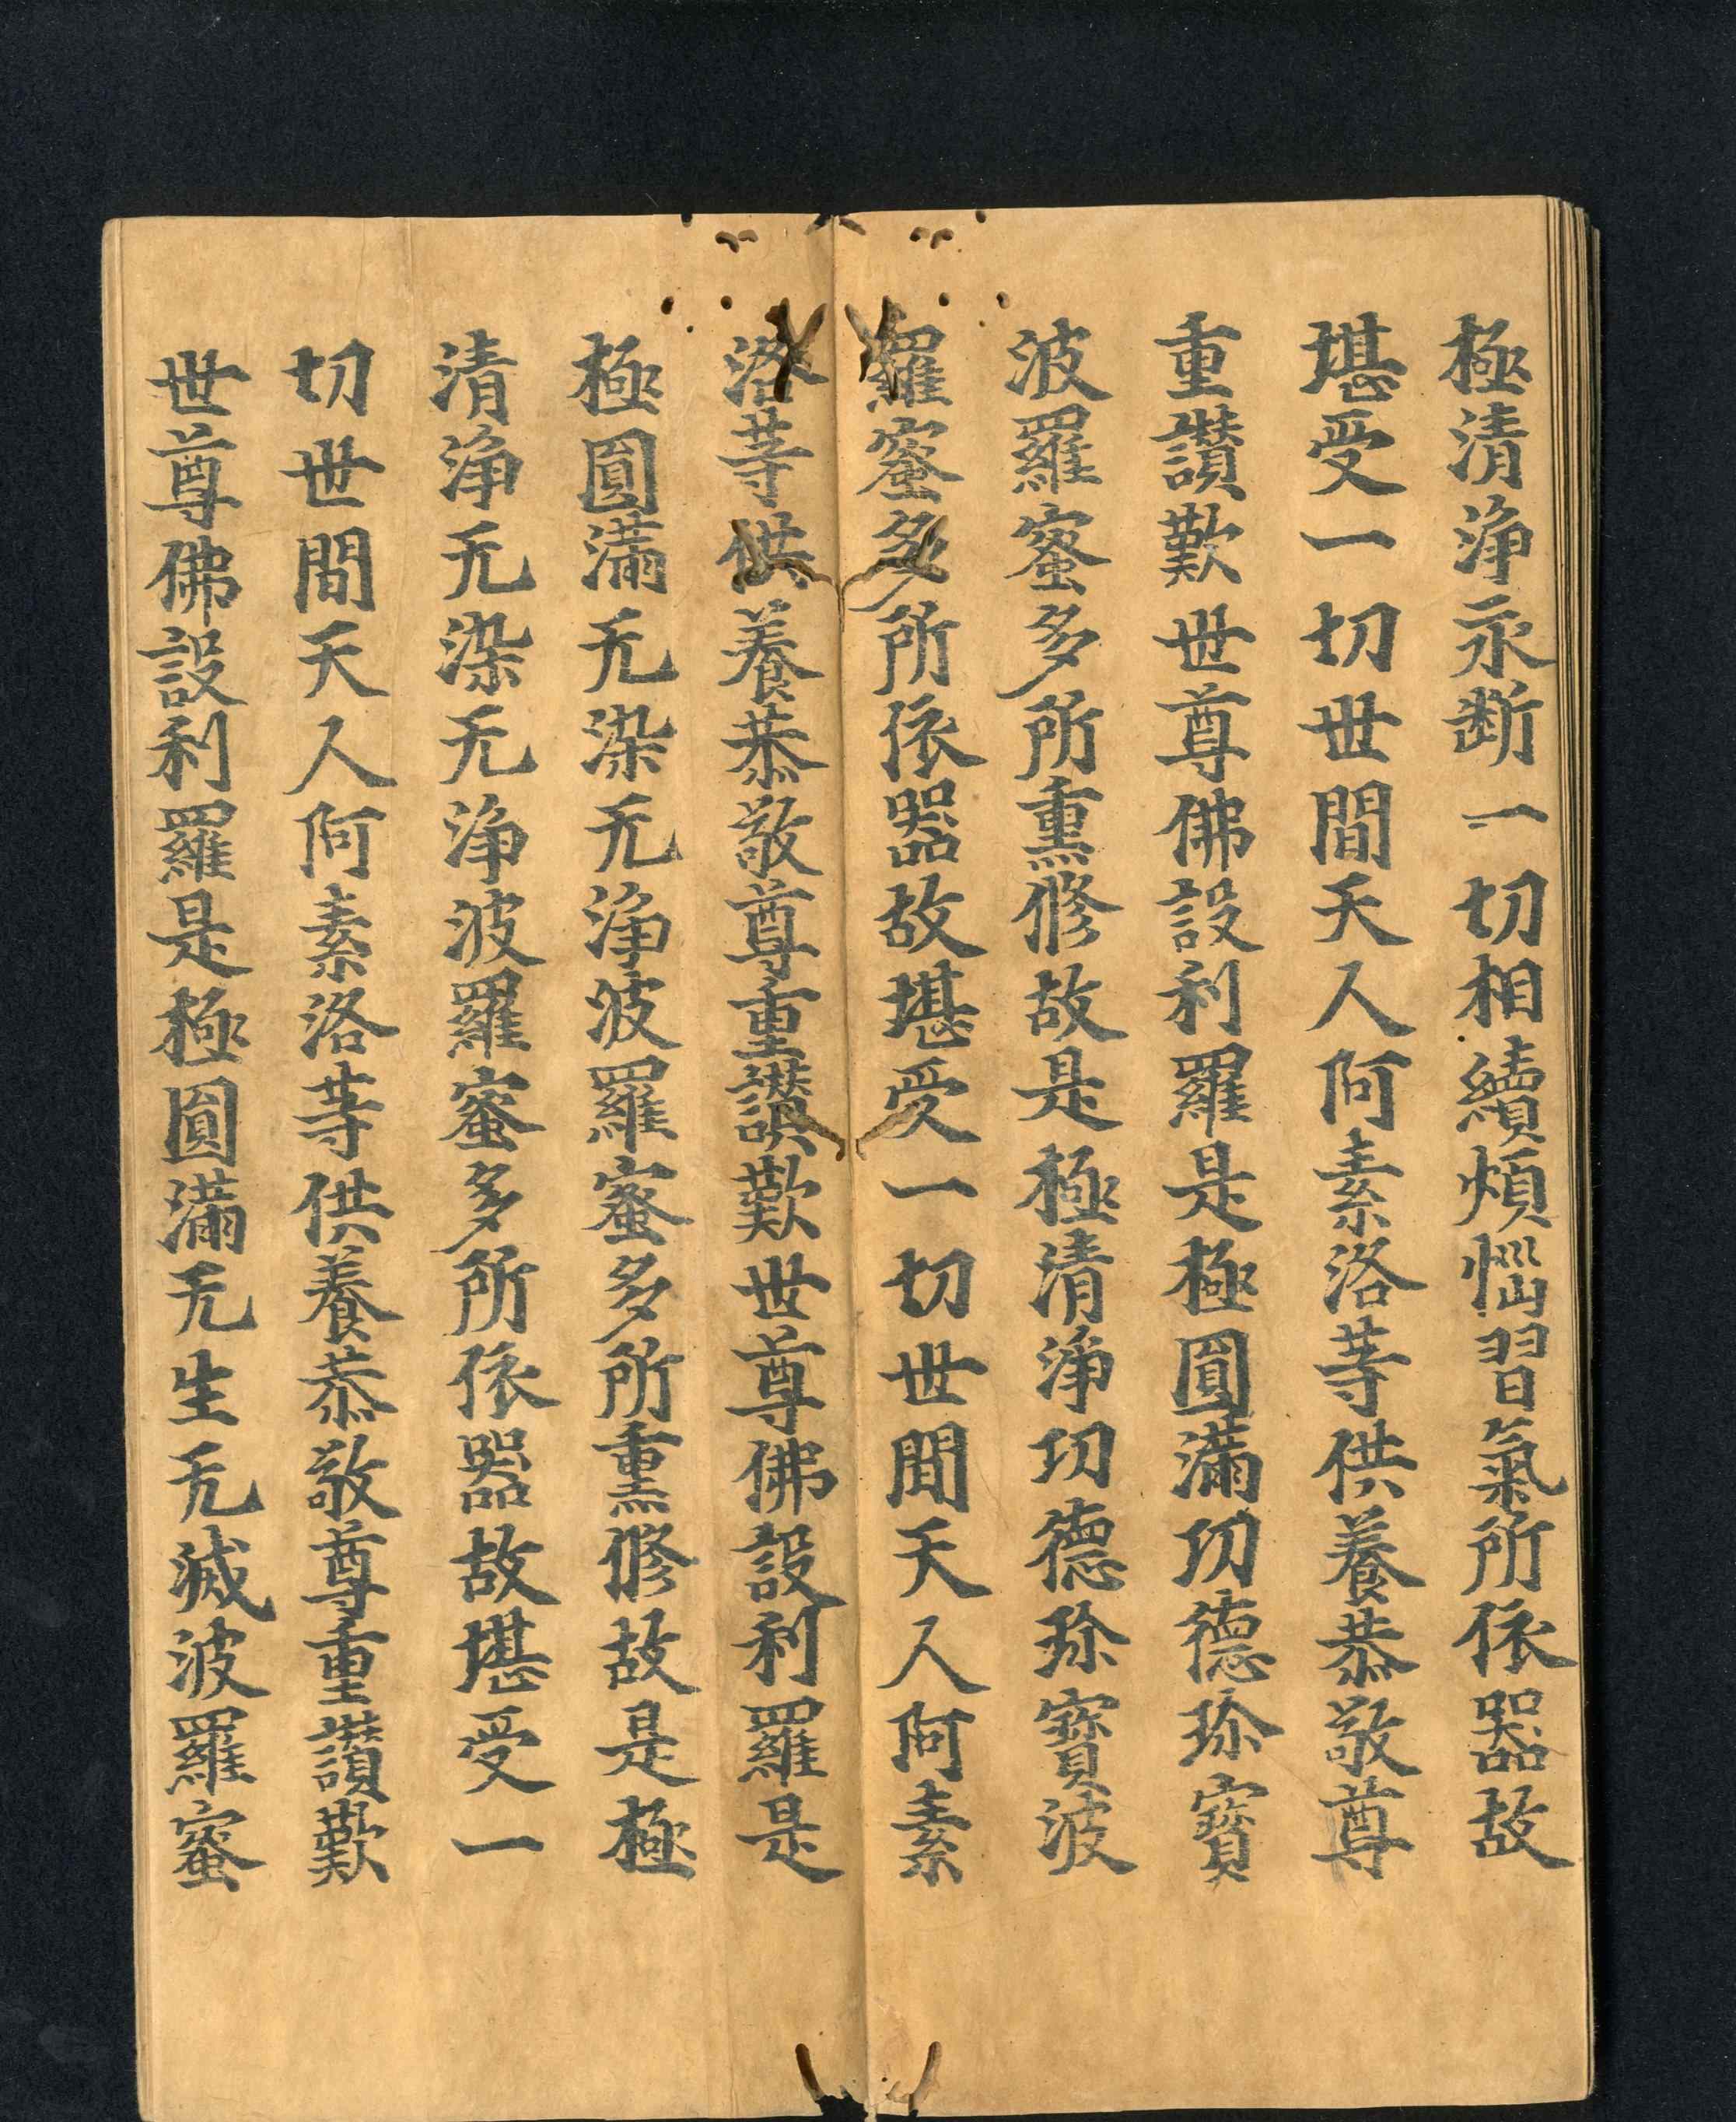 極清淨永斷一切相續煩惱習氣所依器故
堪受一切世間天人阿素洛等供養恭敬尊
重讚歎世尊佛設利羅是極圓滿功德珍寶
波羅蜜多所熏修故是極清淨功德珍寶波
羅蜜多所依器故堪受一切世間天人阿素
洛等供養恭敬尊重讚歎世尊佛設利羅是
極圓滿无染无淨波羅蜜多所熏修故是極
清淨无染无淨波羅蜜多所依器故堪受一
切世間天人阿素洛等供養恭敬尊重讚歎
世尊佛設利羅是極圓滿无生无滅波羅蜜